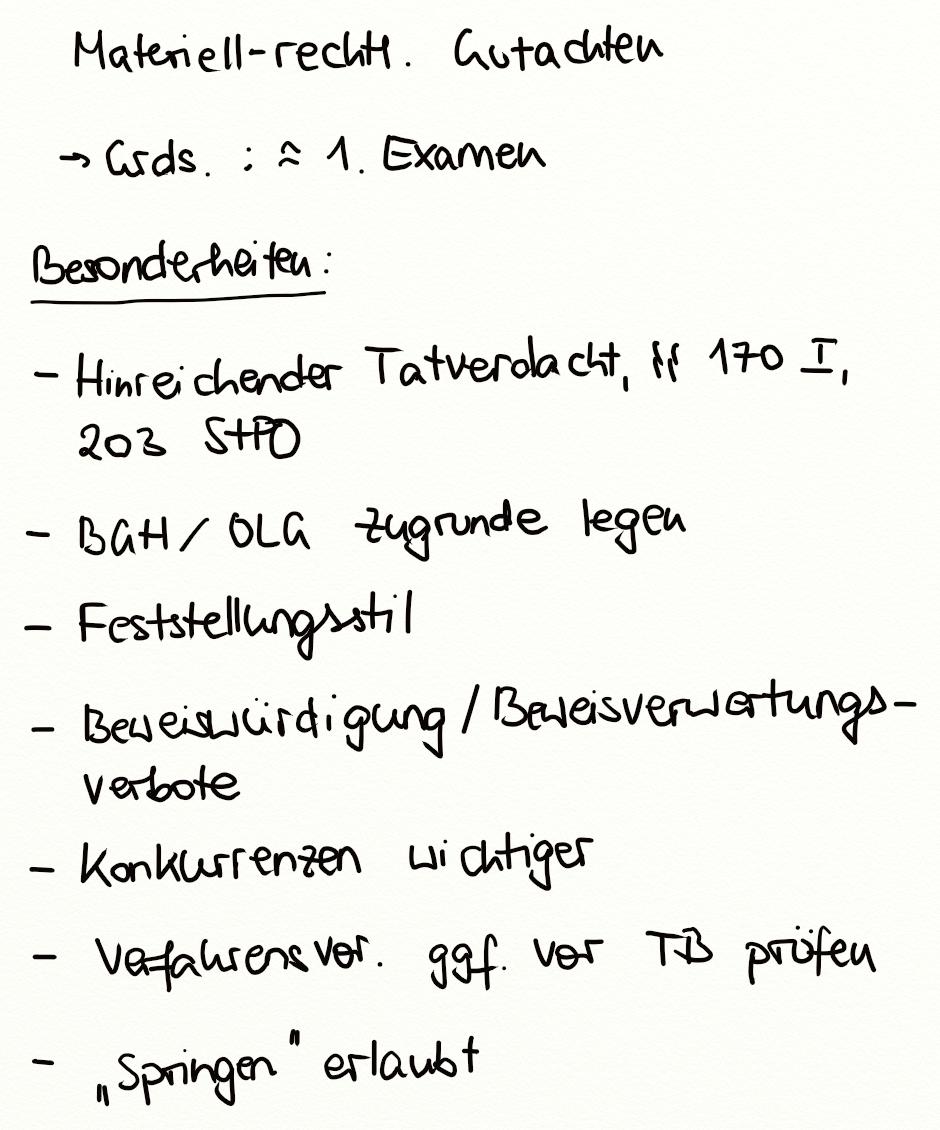 Materiell-rechtl. Gutachten
→ Grds. : ≈ 1. Examen
Besonderheiten:
- Hinreichender Tatverdacht, §§ 170 I,
203 StPO
- BGH/OLG zugrunde legen
- Feststellungsstil
- Beweiswürdigung/Beweisverwertungs-
verbote
- Konkurrenzen wichtiger
- Verfahrensvor. ggf. vor TB prüfen
- „Springen" erlaubt